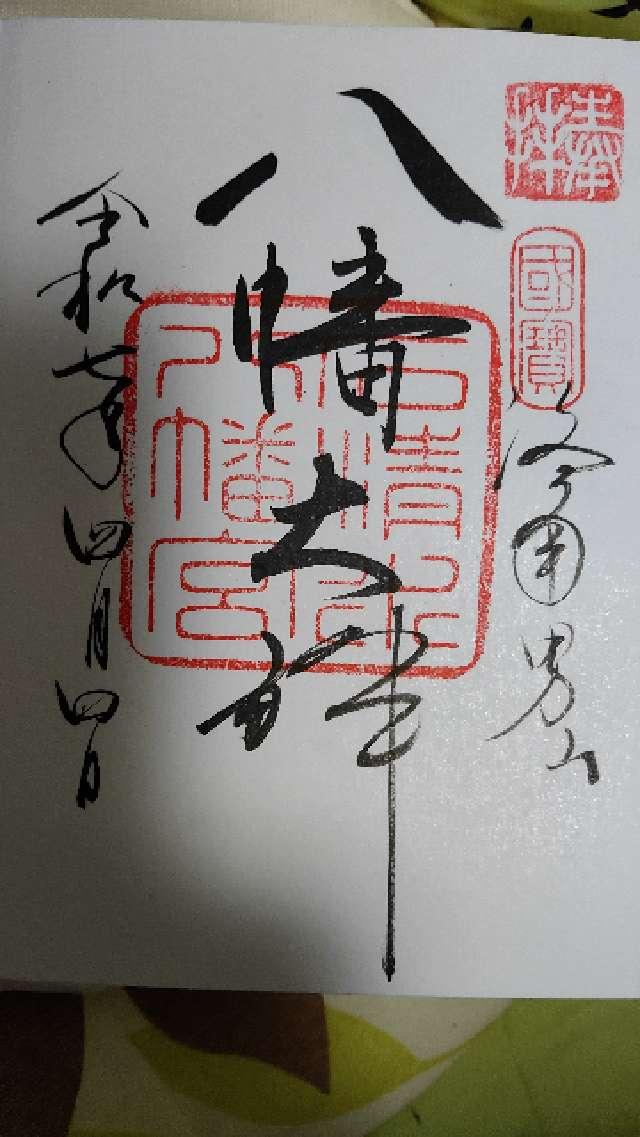 奉拝
國寶
洛南男山
八幡大神
石清水八幡宮
令和七年四月四日